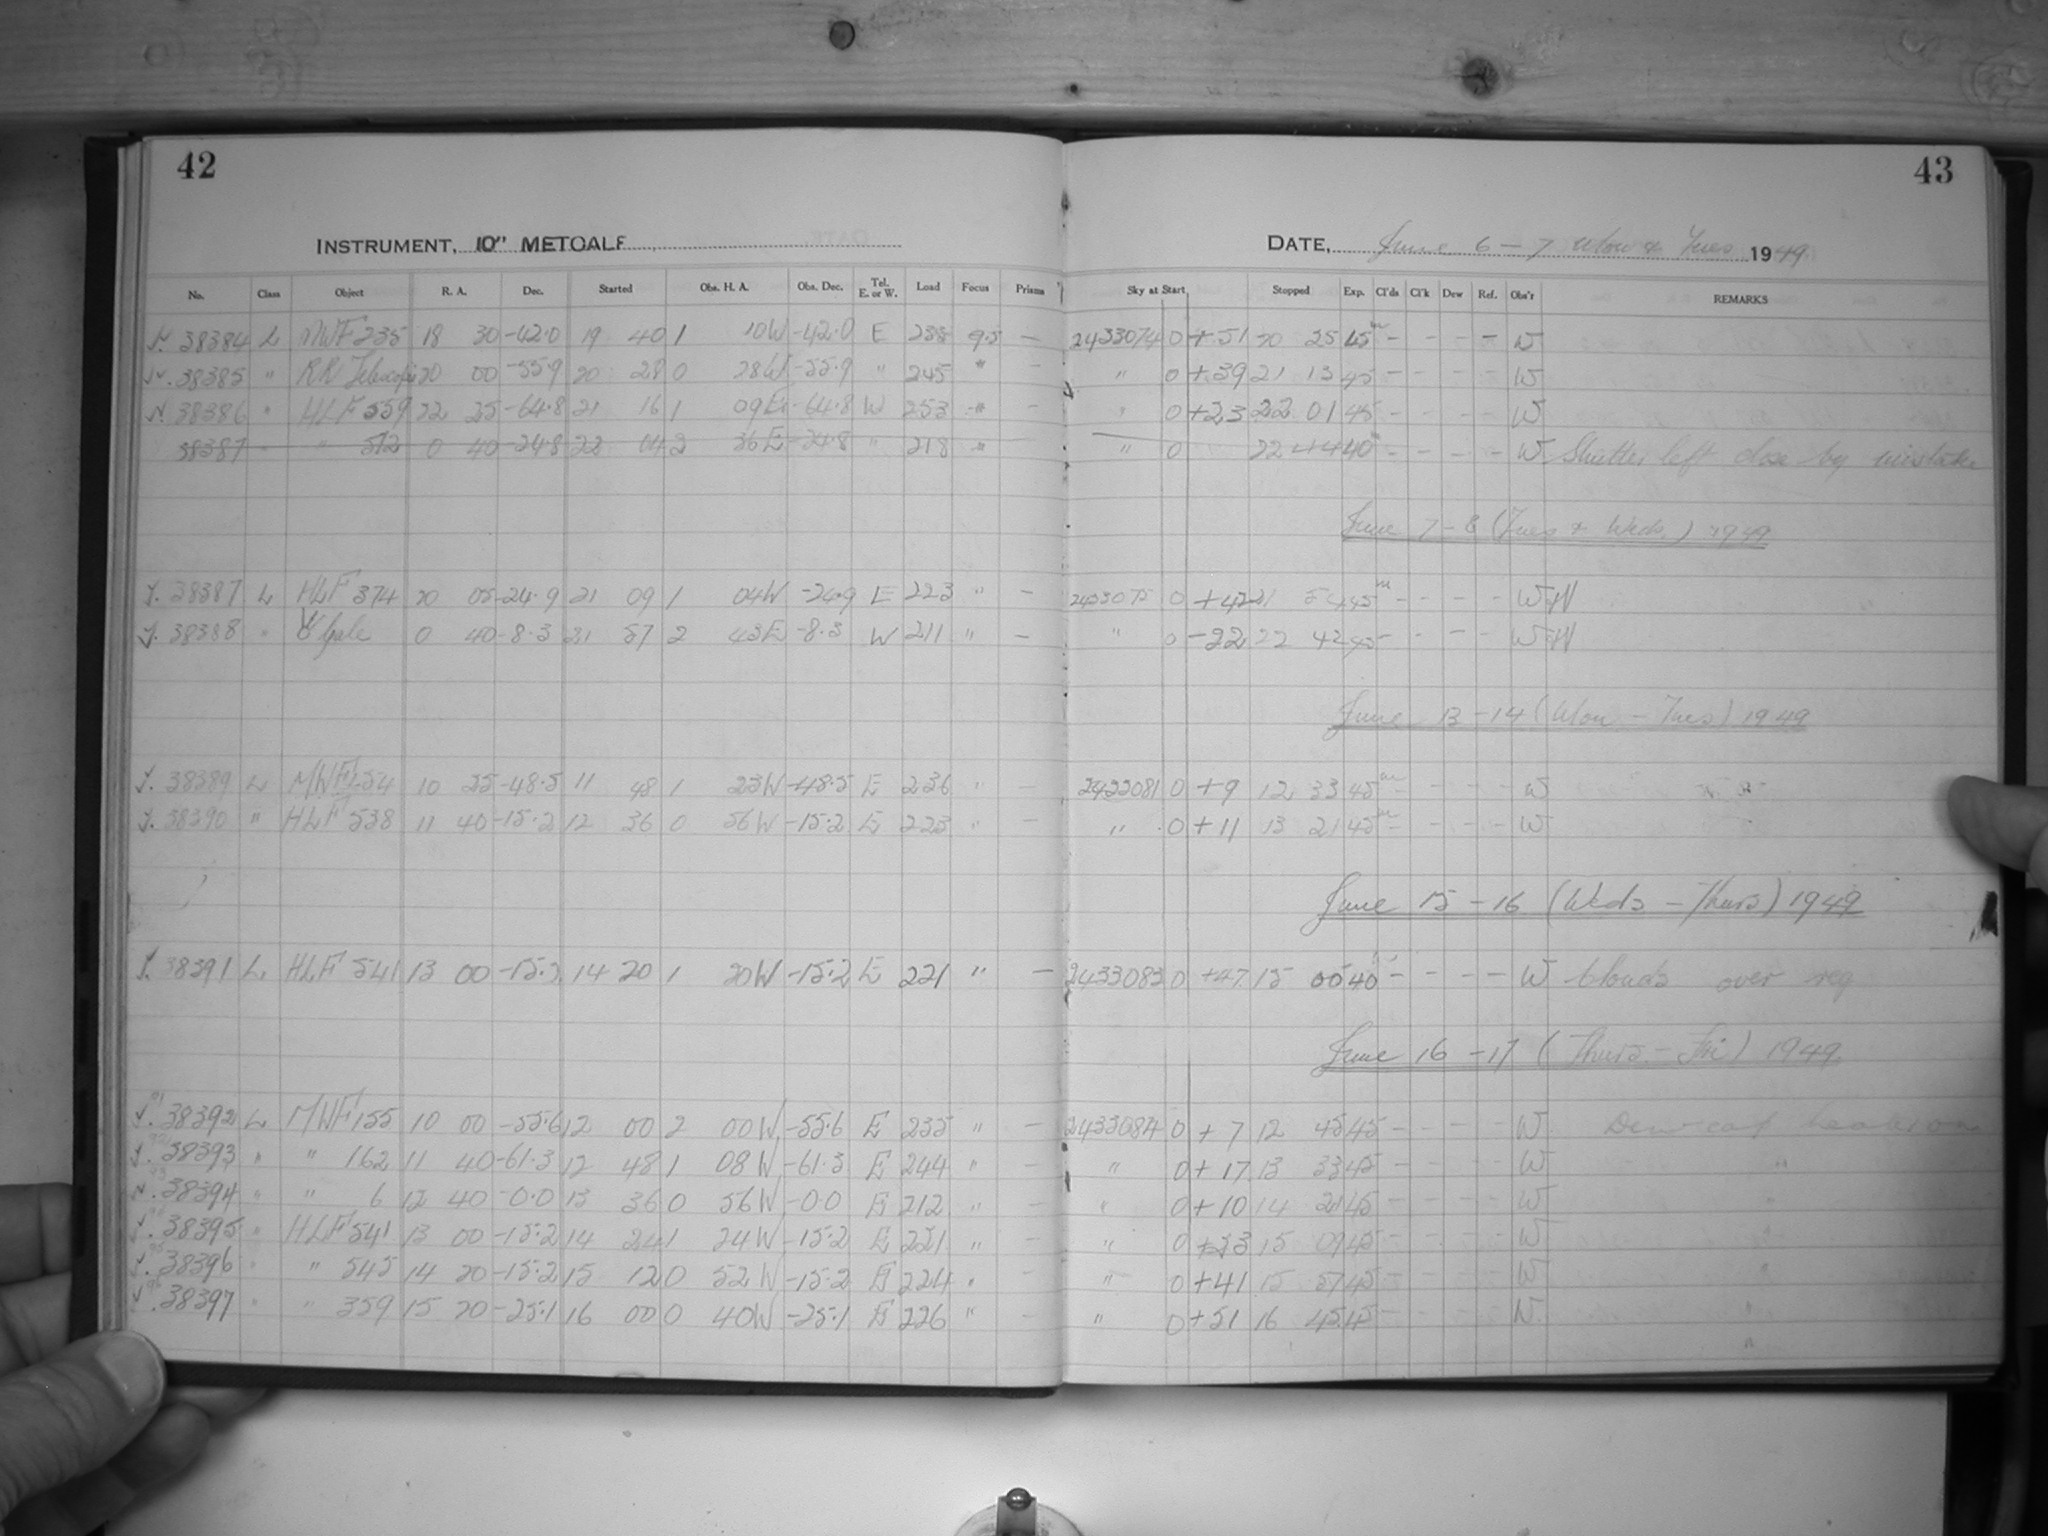 42
43
INSTRUMENT, 10" METCALF
DATE, June 6 - 7 Mon & Tues 1949.
No. Class Object R. A. Dec. Started Obs. H. A. Obs. Dec. Tel. E. or W. Load Focus Prisms Sky at Start Stopped Exp. Cl'ds Cl'k Dew Ref. Obs'r REMARKS
38384 L MWF 235 18 30 -42.0 19 40 1 10W -42.0 E 238 9.5 — 2433074 0 +.51 20 25 45m - - - - W
38385 " RR Telescopii 20 00 -55.9 20 28 0 28W -55.9 " 245 " - " 0 +39 21 13 45 - - - - W
N. 38386 " HLF 559 22 25 -64.8 21 16 1 09E -64.8 W 253 " - " 0 +23 22 01 45 - - - - W
38387 " 572 0 40 -24.8 22 04 2 36E -24.8 " 218 " " 0 22 44 40m - - - - W Shutter left close by mistake
June 7 - 8 (Tues & Weds.) 1949
38387 L HLF 374 20 05 -24.9 21 09 1 04W -24.9 E 223 " - 2433075 0 +42 21 54 45m - - - - W
38388 " Gale 0 40 -8.3 21 57 2 43E -8.3 W 211 " - " 0 -22 22 42 45 - - - - W
June 13 - 14 (Mon - Tues) 1949
38389 L MWF 154 10 25 -48.5 11 48 1 23W -48.5 E 236 " - 2433081 0 +9 12 33 45m - - - - W
38390 " HLF 538 11 40 -15.2 12 36 0 56W -15.2 E 223 " - " 0 +11 13 21 45m - - - - W
June 15 - 16 (Weds - Thurs) 1949
38391 L HLF 541 13 00 -15.2 14 20 1 20W -15.2 E 221 " — 2433083 0 +47 15 00 40 - - - - W Clouds over reg
June 16 - 17 (Thurs. - Fri) 1949.
38392 L MWF 155 10 00 -55.6 12 00 2 00W -55.6 E 235 " - 2433084 0 +7 12 45 45 - - - - W Dewcap heater on
38393 " " 162 11 40 -61.3 12 48 1 08W -61.3 E 244 " - " 0 +17 13 33 45 - - - - W "
N. 38394 " " 6 12 40 -0.0 13 36 0 56W -0.0 E 212 " - " 0 +10 14 21 45 - - - - W "
38395 " HLF 541 13 00 -15.2 14 24 1 24W -15.2 E 221 " - " 0 +53 15 09 45 - - - - W "
38396 " 545 14 20 -15.2 15 12 0 52W -15.2 E 224 " - " 0 +41 15 57 45 - - - - W "
38397 " " 359 15 20 -25.1 16 00 0 40W -25.1 E 226 " - " 0 +51 16 45 45 - - - - W "